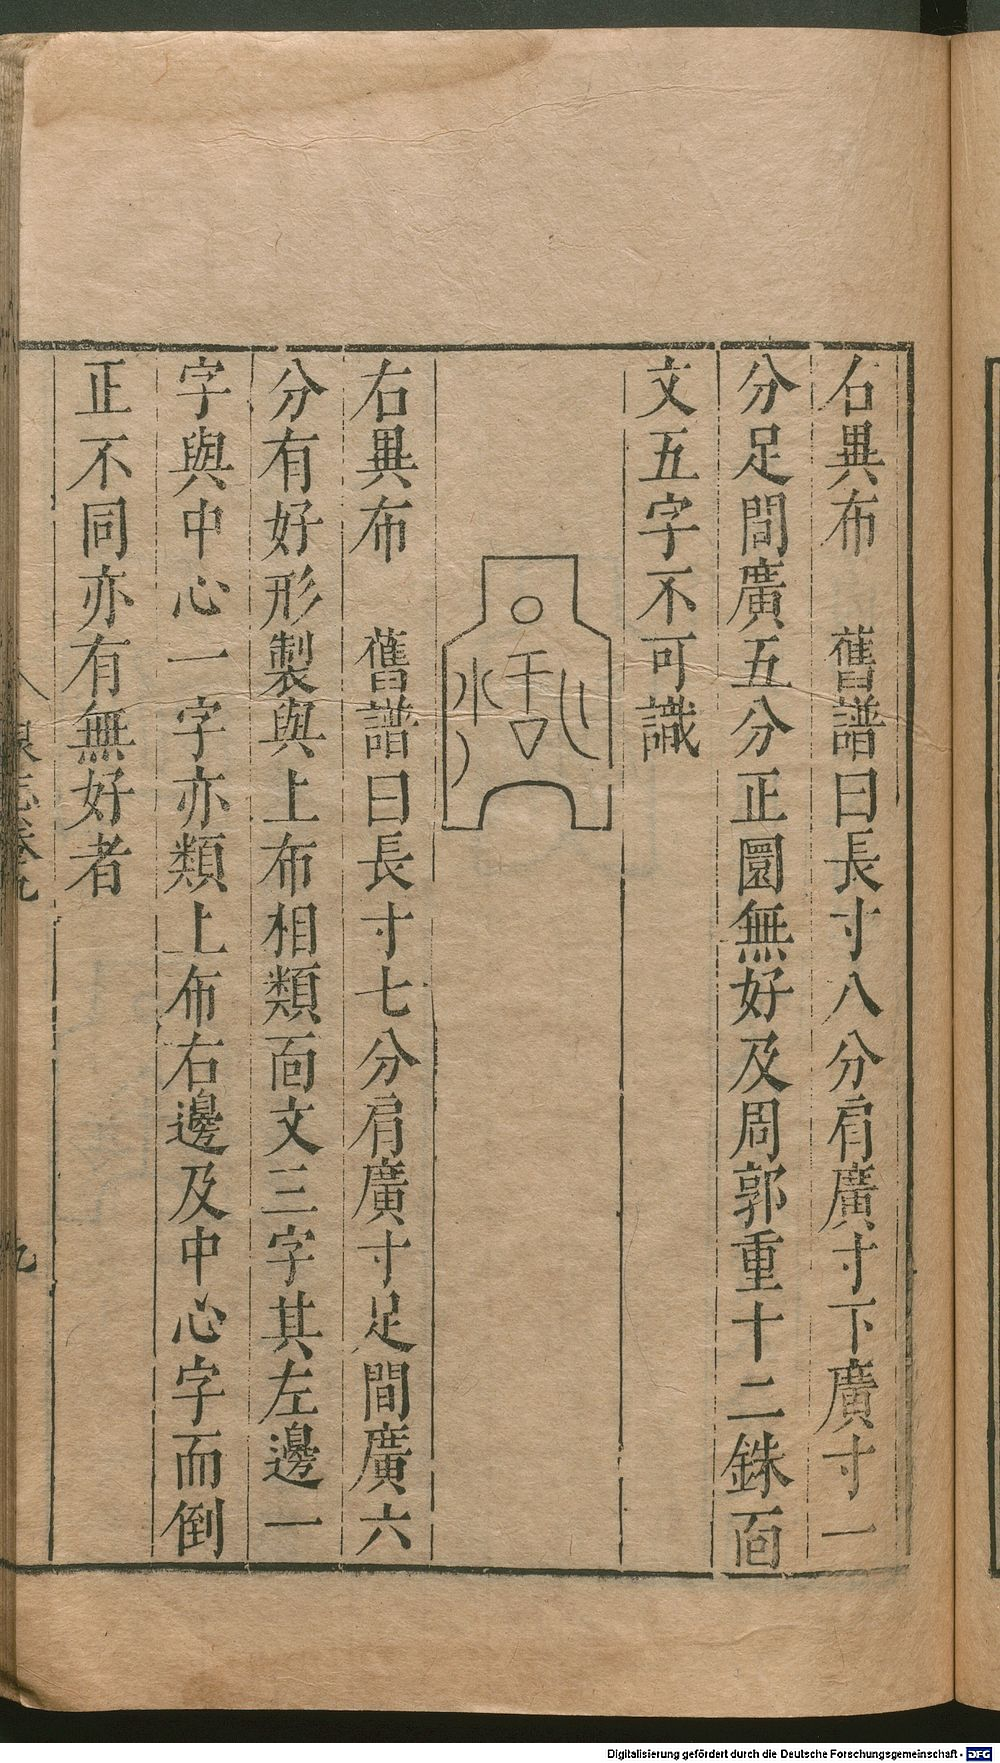 右異布　舊譜曰長寸八分肩廣寸下廣寸一
分足間廣五分正圜無好及周郭重十二銖面
文五字不可識
右異布　舊譜曰長寸七分肩廣寸足間廣六
分有好形製與上布相類面文三字其左邊一
字與中心一字亦類上布右邊及中心字而倒
正不同亦有無好者
泉志卷九
九
Digitalisierung gefördert durch die Deutsche Forschungsgemeinschaft - DFG